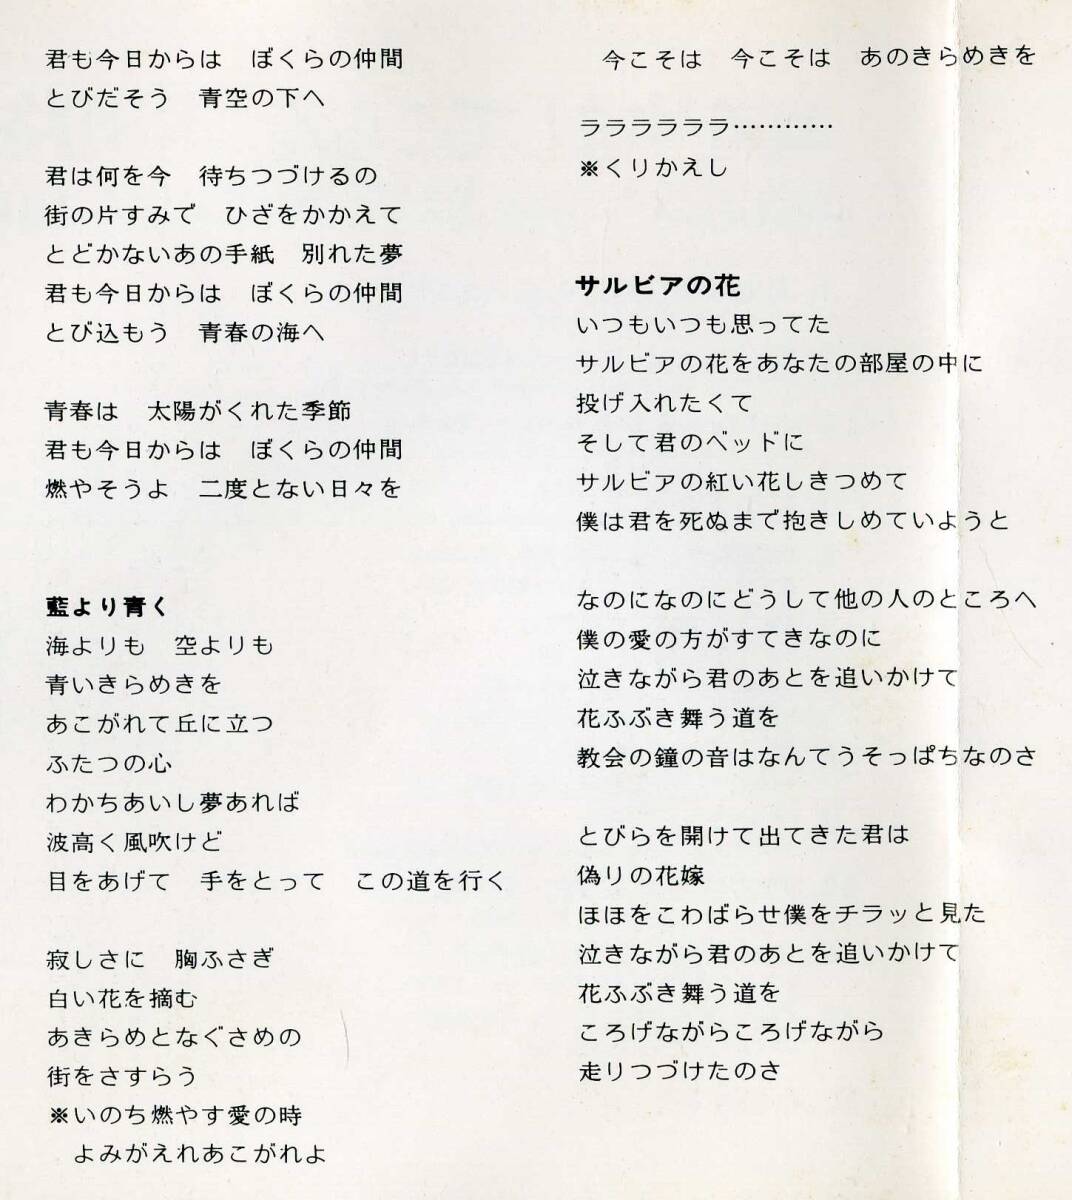 君も今日からは　ぼくらの仲間
とびだそう　青空の下へ

君は何を今　待ちつづけるの
街の片すみで　ひざをかかえて
とどかないあの手紙　別れた夢
君も今日からは　ぼくらの仲間
とび込もう　青春の海へ

青春は　太陽がくれた季節
君も今日からは　ぼくらの仲間
燃やそうよ　二度とない日々を

藍より青く
海よりも　空よりも
青いきらめきを
あこがれて丘に立つ
ふたつの心
わかちあいし夢あれば
波高く風吹けど
目をあげて　手をとって　この道を行く

寂しさに　胸ふさぎ
白い花を摘む
あきらめとなぐさめの
街をさすらう
※いのち燃やす愛の時
　よみがえれあこがれよ
　今こそは　今こそは　あのきらめきを

ラララララララ…………
※くりかえし

サルビアの花
いつもいつも思ってた
サルビアの花をあなたの部屋の中に
投げ入れたくて
そして君のベッドに
サルビアの紅い花しきつめて
僕は君を死ぬまで抱きしめていようと

なのになのにどうして他の人のところへ
僕の愛の方がすてきなのに
泣きながら君のあとを追いかけて
花ふぶき舞う道を
教会の鐘の音はなんてうそっぱちなのさ

とびらを開けて出てきた君は
偽りの花嫁
ほほをこわばらせ僕をチラッと見た
泣きながら君のあとを追いかけて
花ふぶき舞う道を
ころげながらころげながら
走りつづけたのさ